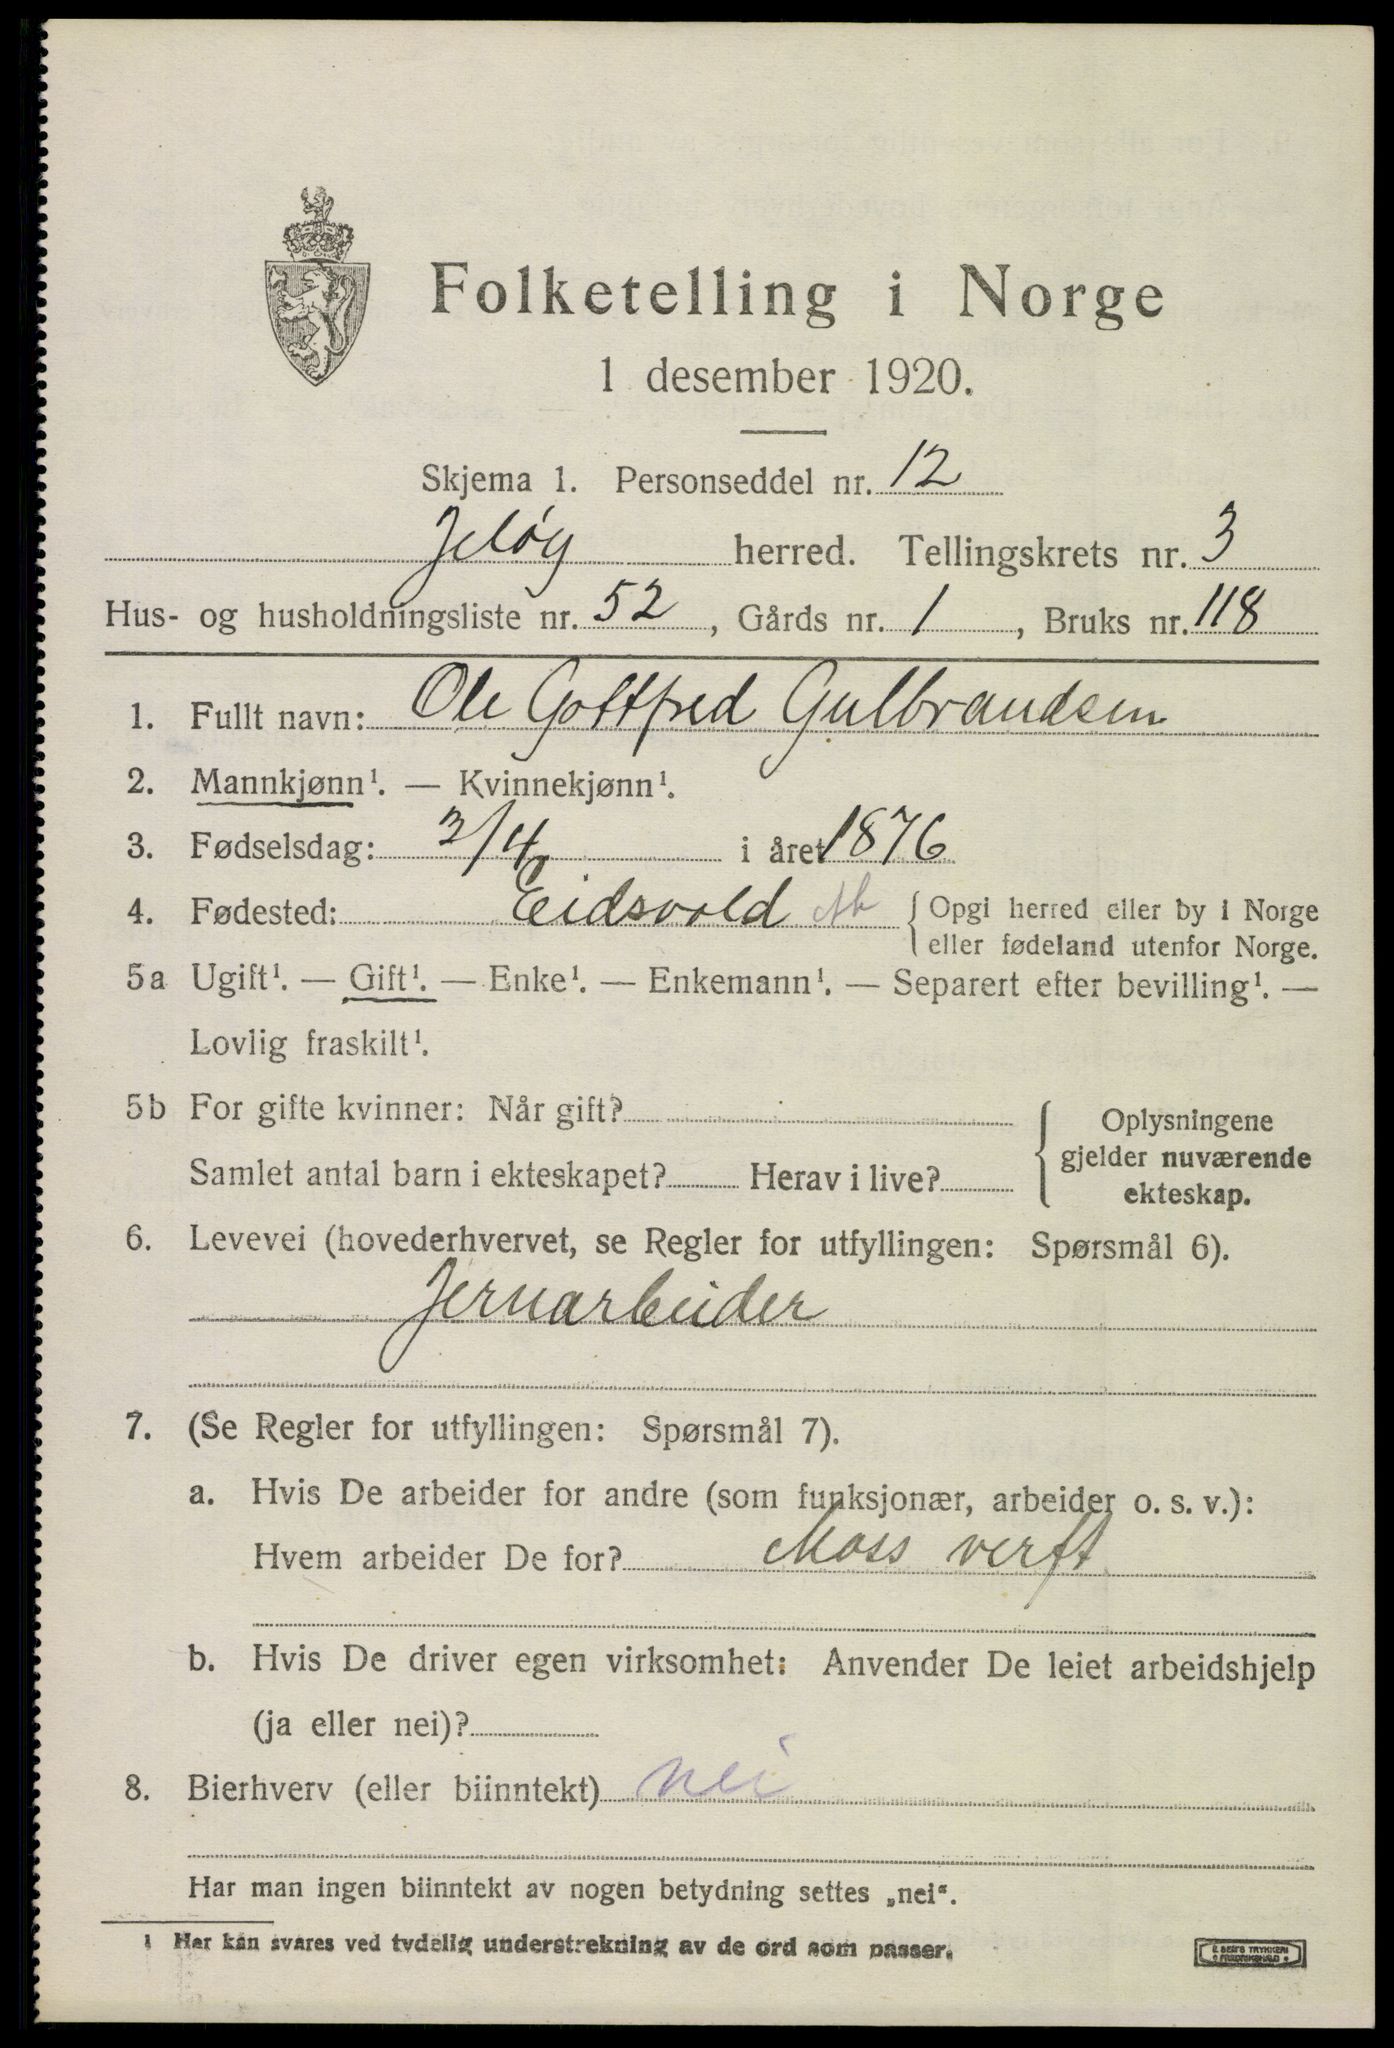 Folketelling i Norge
1 desember 1920.
Skjema 1. Personseddel nr. 12
Jeløy herred. Tellingskrets nr. 3
Hus- og husholdningsliste nr. 52, Gårds nr. 1, Bruks nr. 118
1. Fullt navn: Ole Gottfred Gulbrandsen
2. Mannkjønn¹. — Kvinnekjønn¹.
3. Fødselsdag: 2/4 i året 1876
4. Fødested: Eidsvold Ak { Opgi herred eller by i Norge
eller fødeland utenfor Norge.
5a Ugift¹. — Gift¹. — Enke¹. — Enkemann¹. — Separert efter bevilling¹. —
Lovlig fraskilt¹.
5b For gifte kvinner: Når gift? { Oplysningene
gjelder nuværende
Samlet antal barn i ekteskapet? Herav i live? ekteskap.
6. Levevei (hovederhvervet, se Regler for utfyllingen: Spørsmål 6).
Jernarbeider
7. (Se Regler for utfyllingen: Spørsmål 7).
a. Hvis De arbeider for andre (som funksjonær, arbeider o. s. v.):
Hvem arbeider De for? Moss verft
b. Hvis De driver egen virksomhet: Anvender De leiet arbeidshjelp
(ja eller nei)?
8. Bierhverv (eller biinntekt) nei
Har man ingen biinntekt av nogen betydning settes „nei“.
1 Her kan svares ved tydelig understrekning av de ord som passer.
E. SEM'S TRYKKERI
FREDRIKSHALD